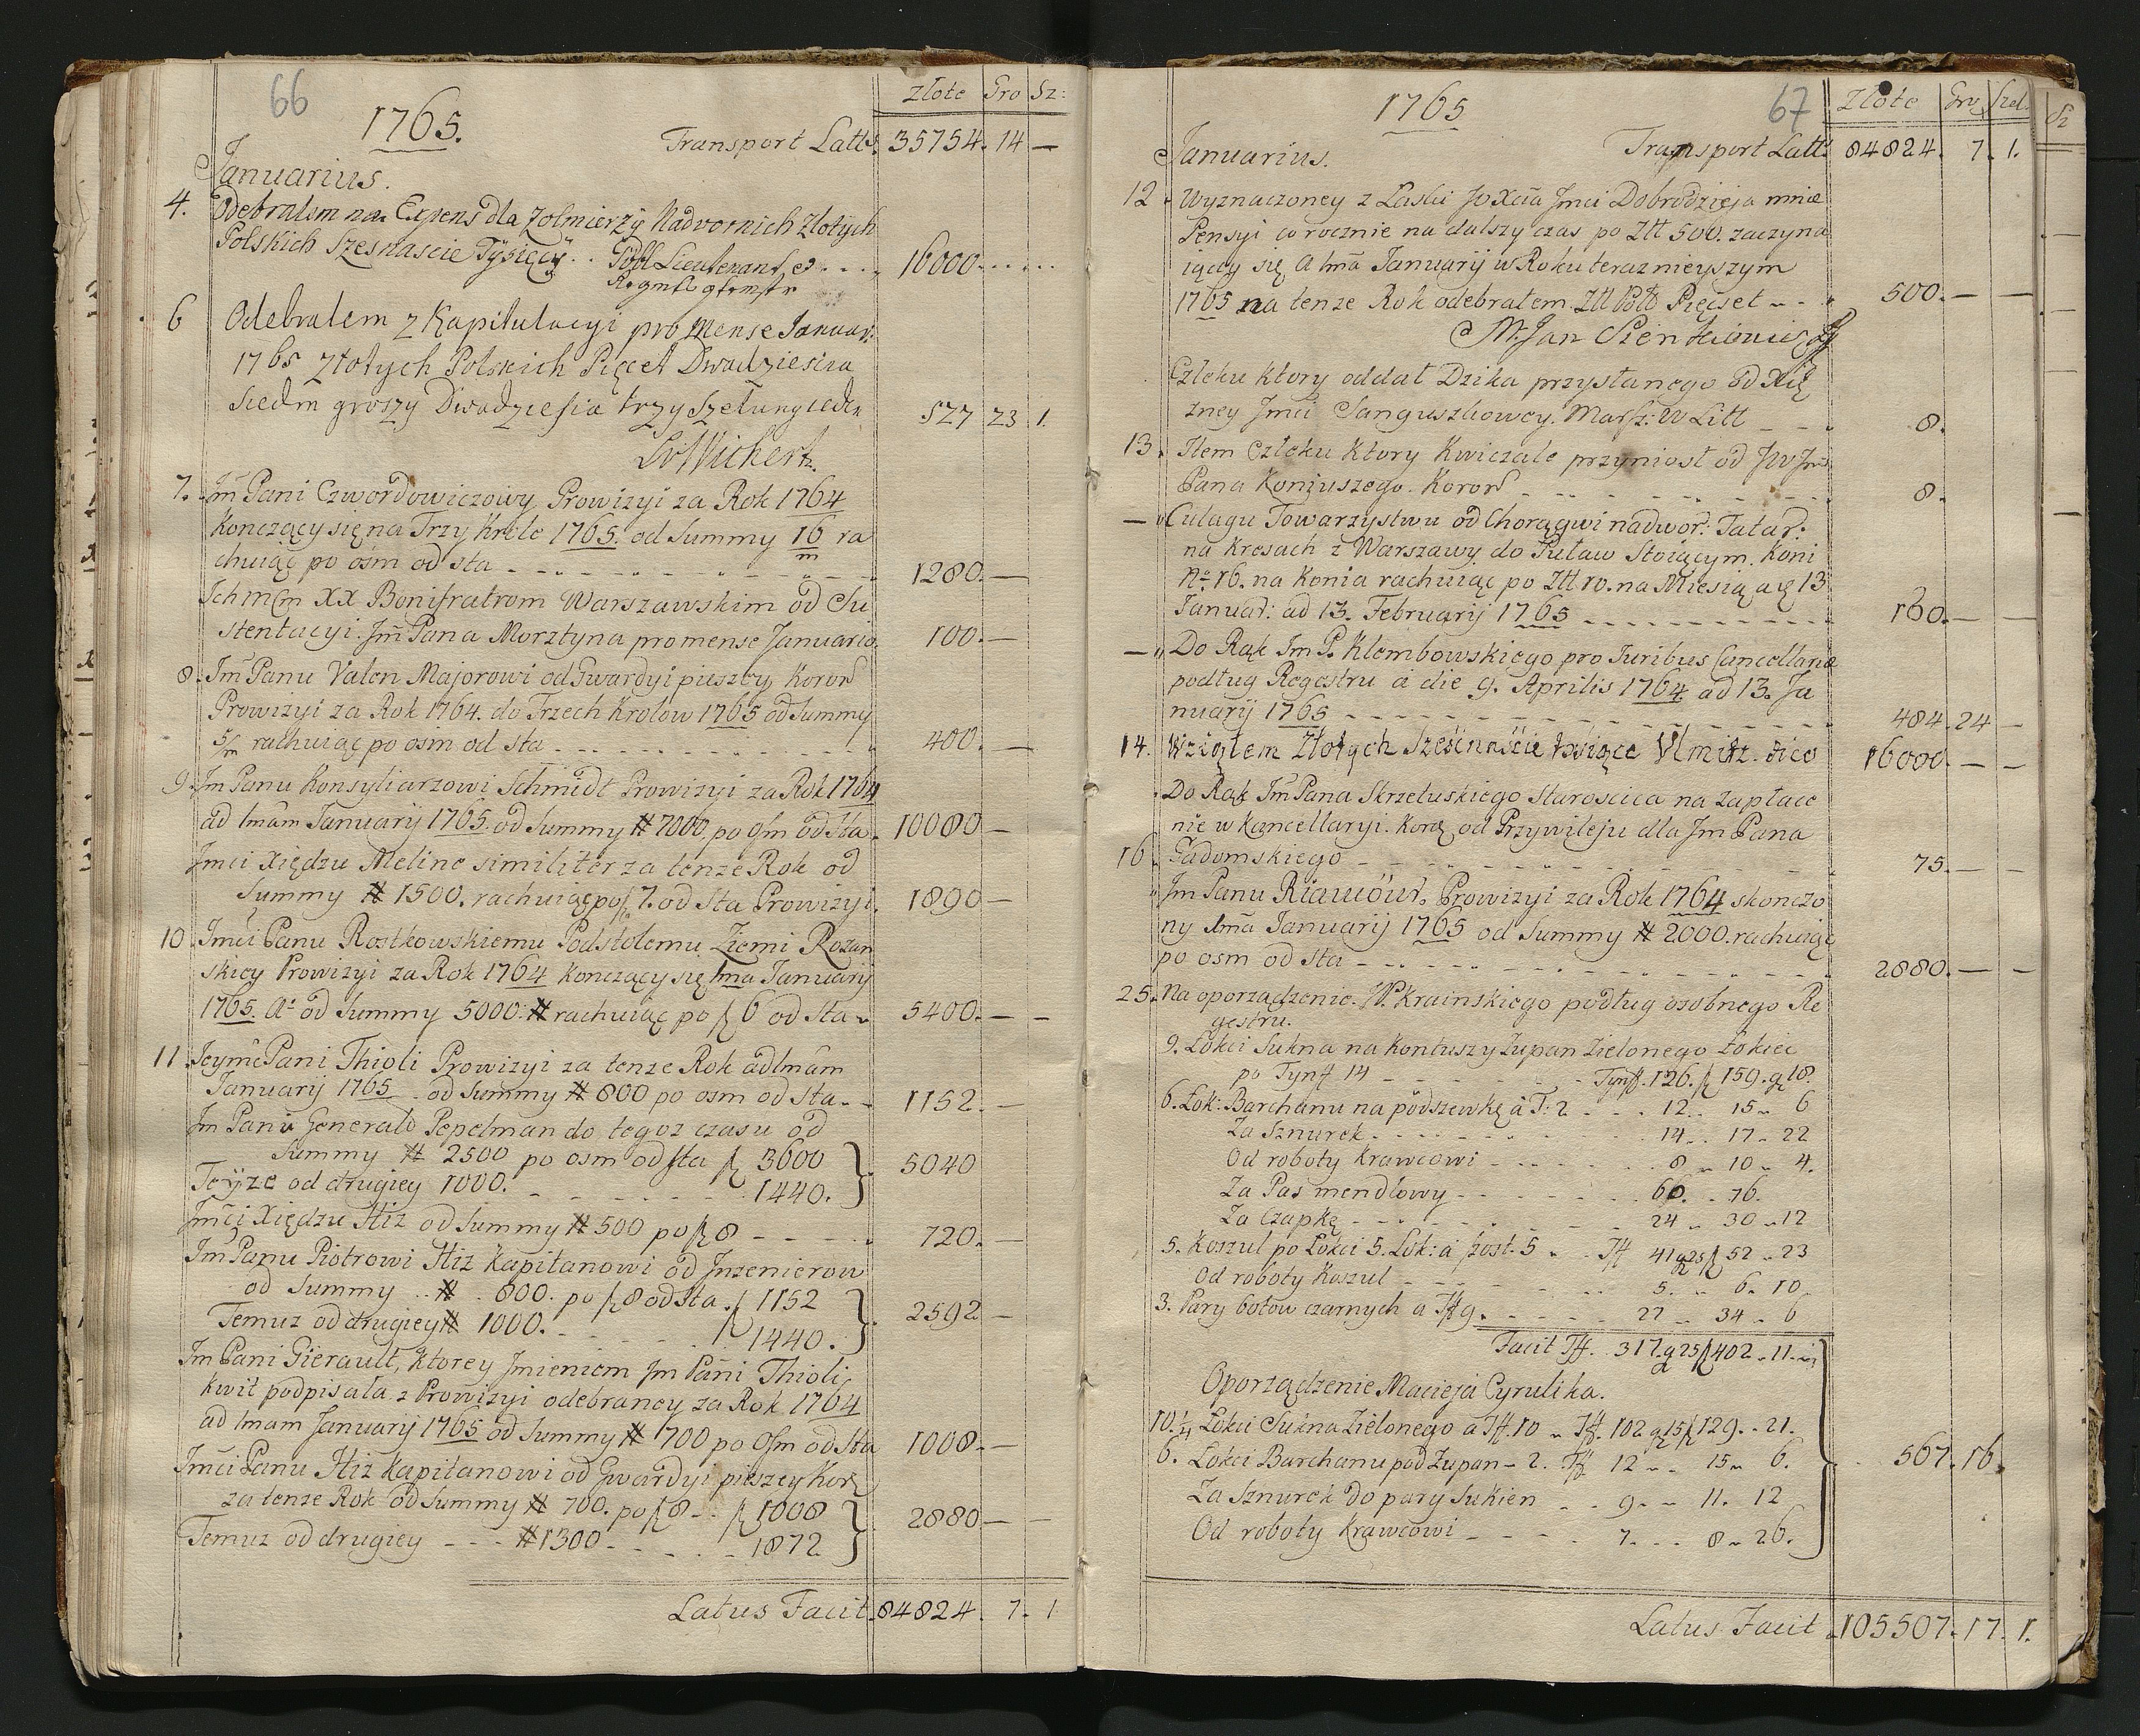 66
1765.
Zlote Gro Sz:
Transport Latts. 35754. 14 —
Januarius.
4. Odebralem na Expens dla Zolmierzy Nadvornich Zlotych
Polskich Szesnascie Tysięcy . . Lieutenant . . . . 16000 . . . . . .
6 Odebralem z Kapitulacyi pro Mense Januar:
1765 Złotych Polskich Pięcet Dwadziescia
Siedm groszy Dwadziesia trzy Szelung ieden 527 23 1.
Wichert
7. Jm Pani Czwordowiczowy Prowizyi za Rok 1764
Konczący się na Trzy Krole 1765. od Summy 16/m ra
chuiąc po osm od sta 1280. —
Ichmcm XX Bonifratrom Warszawskim od Su
stentacyi Jm Pana Morsztyna pro mense Januario. 100. —
8. Jm Panu Valen Majorowi od Gwardyi pieszey Koron
Prowizyi za Rok 1764. do Trzech Krolow 1765 od Summy
5/m rachuiąc po osm od sta 400. —
9. Jm Panu Konsyliarzowi Schmidt Prowizyi za Rok 1764
ad 1mam Januarij 1765. od Summy # 7000. po osm od sta. 10080 —
Jmci Xiędzu Meline similiter za tenze Rok od
Summy # 1500. rachuiąc po f 7. od sta Prowizyi. 1890 —
10. Jmci Panu Rostkowskiemu Podstolemu Ziemi Rozan
skiey Prowizyi za Rok 1764 Konczący się 1ma Januarij
1765. A° od Summy 5000. # rachuiąc po f 6 od sta 5400. — —
11. Jeymc Pani Thioli Prowizyi za tenze Rok ad 1mam
Januarij 1765 . od Summy # 800 po osm od sta. . 1152. —
Jm Pani Generalo Pepelman do tegoz czasu od
Summy # 2500 po osm od sta f 3600
Teyze od drugiey 1000. 1440. } 5040
Jmci Xiędzu Hiz od Summy # 500 po f 8 720. —
Jm Panu Piotrowi Hiz Kapitanowi od Inzenierow
od Summy . . # . 800. po f 8 od sta. f 1152
Temuz od drugiey # 1000. f 1440. } 2592 —
Jm Pani Gierault, ktorey Jmieniem Jm Pani Thioli
kwit podpisala z Prowizyi odebraney za Rok 1764
ad 1mam Januarij 1765 od Summy # 700 po osm od sta 1008. —
Jmci Panu Hiz Kapitanowi od Gwardyi pieszey Kor
za tenze Rok od Summy # 700. po f 8 . . f 1008
Temuz od drugiey - - - # 1300 1872 } 2880 — —
Latus Facit. 84824. 7. 1
67
1765
Zlote Gro Szel.
Sz
Transport Latts 84824. 7. 1.
Januarius.
12. Wyznaczoney z Laski Jo Xcia Jmci Dobrodzieja mnie
Pensyi co rocznie na dalszy czas po Ztt 500. zaczyna
iącey się a 1ma Januarij w Roku teraznieyszym
1765 na tenze Rok odebralem Ztt Pięcset 500. — —
M. Jan Sienkiewicz
Czleku ktory oddal Dzika przyslanego od Xię
zney Jmci Sanguszkowey. Marsz: W Litt 8.
13. Item Czleku ktory Kwiczale przyniosl od JW Jmci
Pana Koniuszego Koron 8.
— Culagu Towarzystwu od Chorągwi nadwor: Tatar:
na Kresach z Warszawy do Pulaw Stoiącym. Koni
N° 16. na Konia rachuiąc po Ztt 10. na Miesiąc a 13
Januar: ad 13. Februarij 1765 160. — —
— Do Rąk Jm P. Klembowskiego pro Juribus Cancellariae
podlug Regestru a die 9. Aprilis 1764 ad 13. Ja
nuarij 1765 484. 24 —
14. Wziąłem Złotych Sześćnaście tysięce 16000. — —
Do Rąk Jm Pana Skrzetuskiego Staroscica na zaplace
nie w Kancellaryi Kor od Przywileju dla Jm Pana
16. Gadomskiego 75. — —
Jm Panu Riaucour, Prowizyi za Rok 1764 skonczo
ny 1ma Januarij 1765 od Summy # 2000. rachuiąc
po osm od sta 2880. — —
25. Na oporządzenie W. Krainskiego podlug osobnego Re
gestru.
9. Lokci Sukna na Kontusz y Zupan Zielonego Lokiec
po Tynf 14 Tynf. 126. f 159. g 18.
6. Lok: Barchanu na podszewkę à T: 2 . . . 12. . 15. 6
Za Sznurek 14 . . 17 . 22
Od roboty Krawcowi 8 . 10 . 4.
Za Pas mendlowy 60. . 76.
Za Czapkę 24 . 30 . 12
5. Koszul po Lokci 5. Lok: à szost. 5 . . Tf 41 g 25 f 52 . 23
Od roboty Koszul 5. . 6. 10.
3. Pary botow czarnych a Tf 9. 27 . 34 . 6
Facit Tf. 317. g 25 f 402 . 11.
Oporządzenie Macieja Cyrulika.
10. 1/4 Lokci Sukna Zielonego a Tf. 10 . Tf. 102 g 15 f 129. . 21.
6. Lokci Barchanu pod Zupan - 2. Tf 12 . . 15 . 6. } 567. 16.
Za Sznurek do pary Sukien . . 9. . 11. 12
Od roboty Krawcowi 7. . . 8 . 26.
Latus Facit 105507. 17. 1.